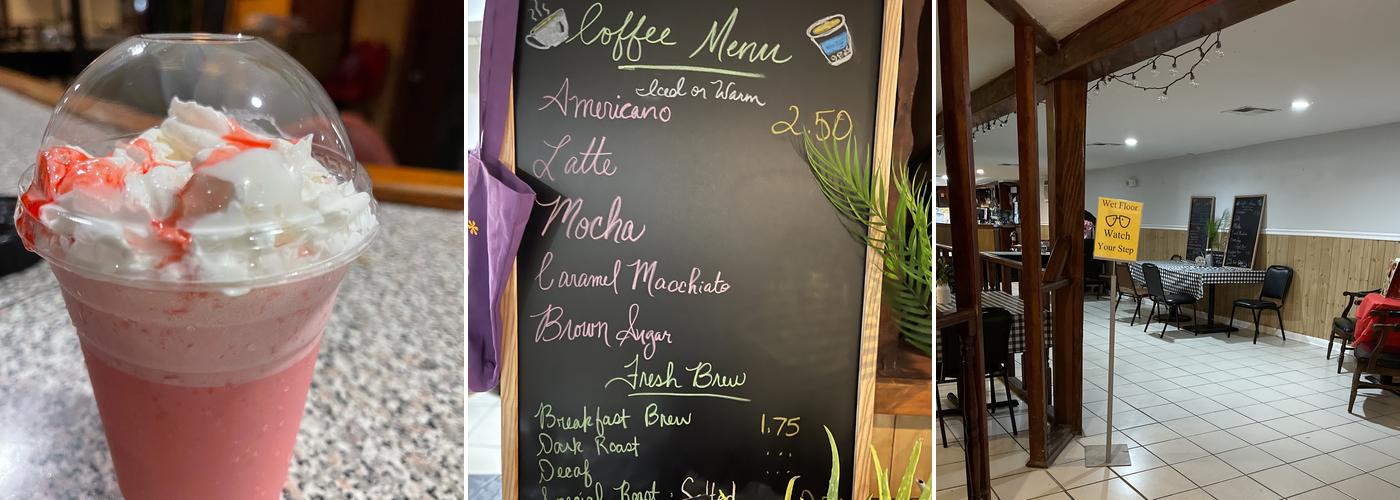 Coffee Menu
Iced or Warm
Americano 2.50
Latte
Mocha
Caramel Macchiato
Brown Sugar
Fresh Brew
Breakfast Brew 1.75
Dark Roast
Decaf
Special Roast : Salted
Wet Floor
Watch
Your Step